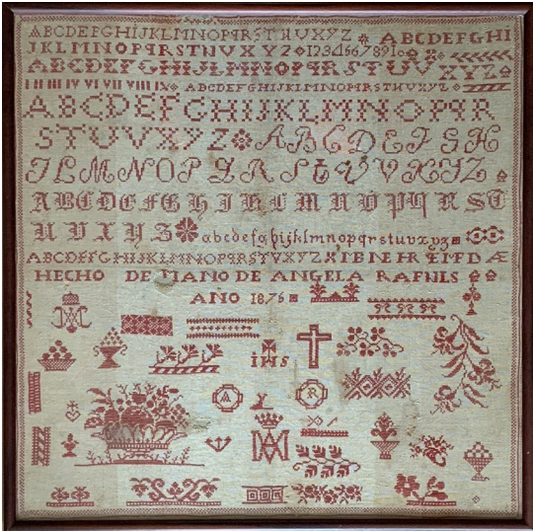 ABCDEFGHIJKLMNOPQRSTUVXYZ ABCDEFGHI
JKLMNOPQRSTUVXYZ 1234567891
ABCDEFGHIJKLMNOPQRSTUVXYZ
I II III IV V VI VII VIII IX ABCDEFGHIJKLMNOPQRSTUVXYZ
ABCDEFGHIJKLMNOPQR
STUVXYZ ABCDEFGH
IJLMNOPQRSTUVXYZ
ABCDEFGHIKLMNOPQRST
UVXYZ abcdefghijklmnopqrstuvxyz
ABCDEFGHIJKLMNOPQRSTUVXYZ
HECHO DE MANO DE ANGELA
AÑO 1876
A R